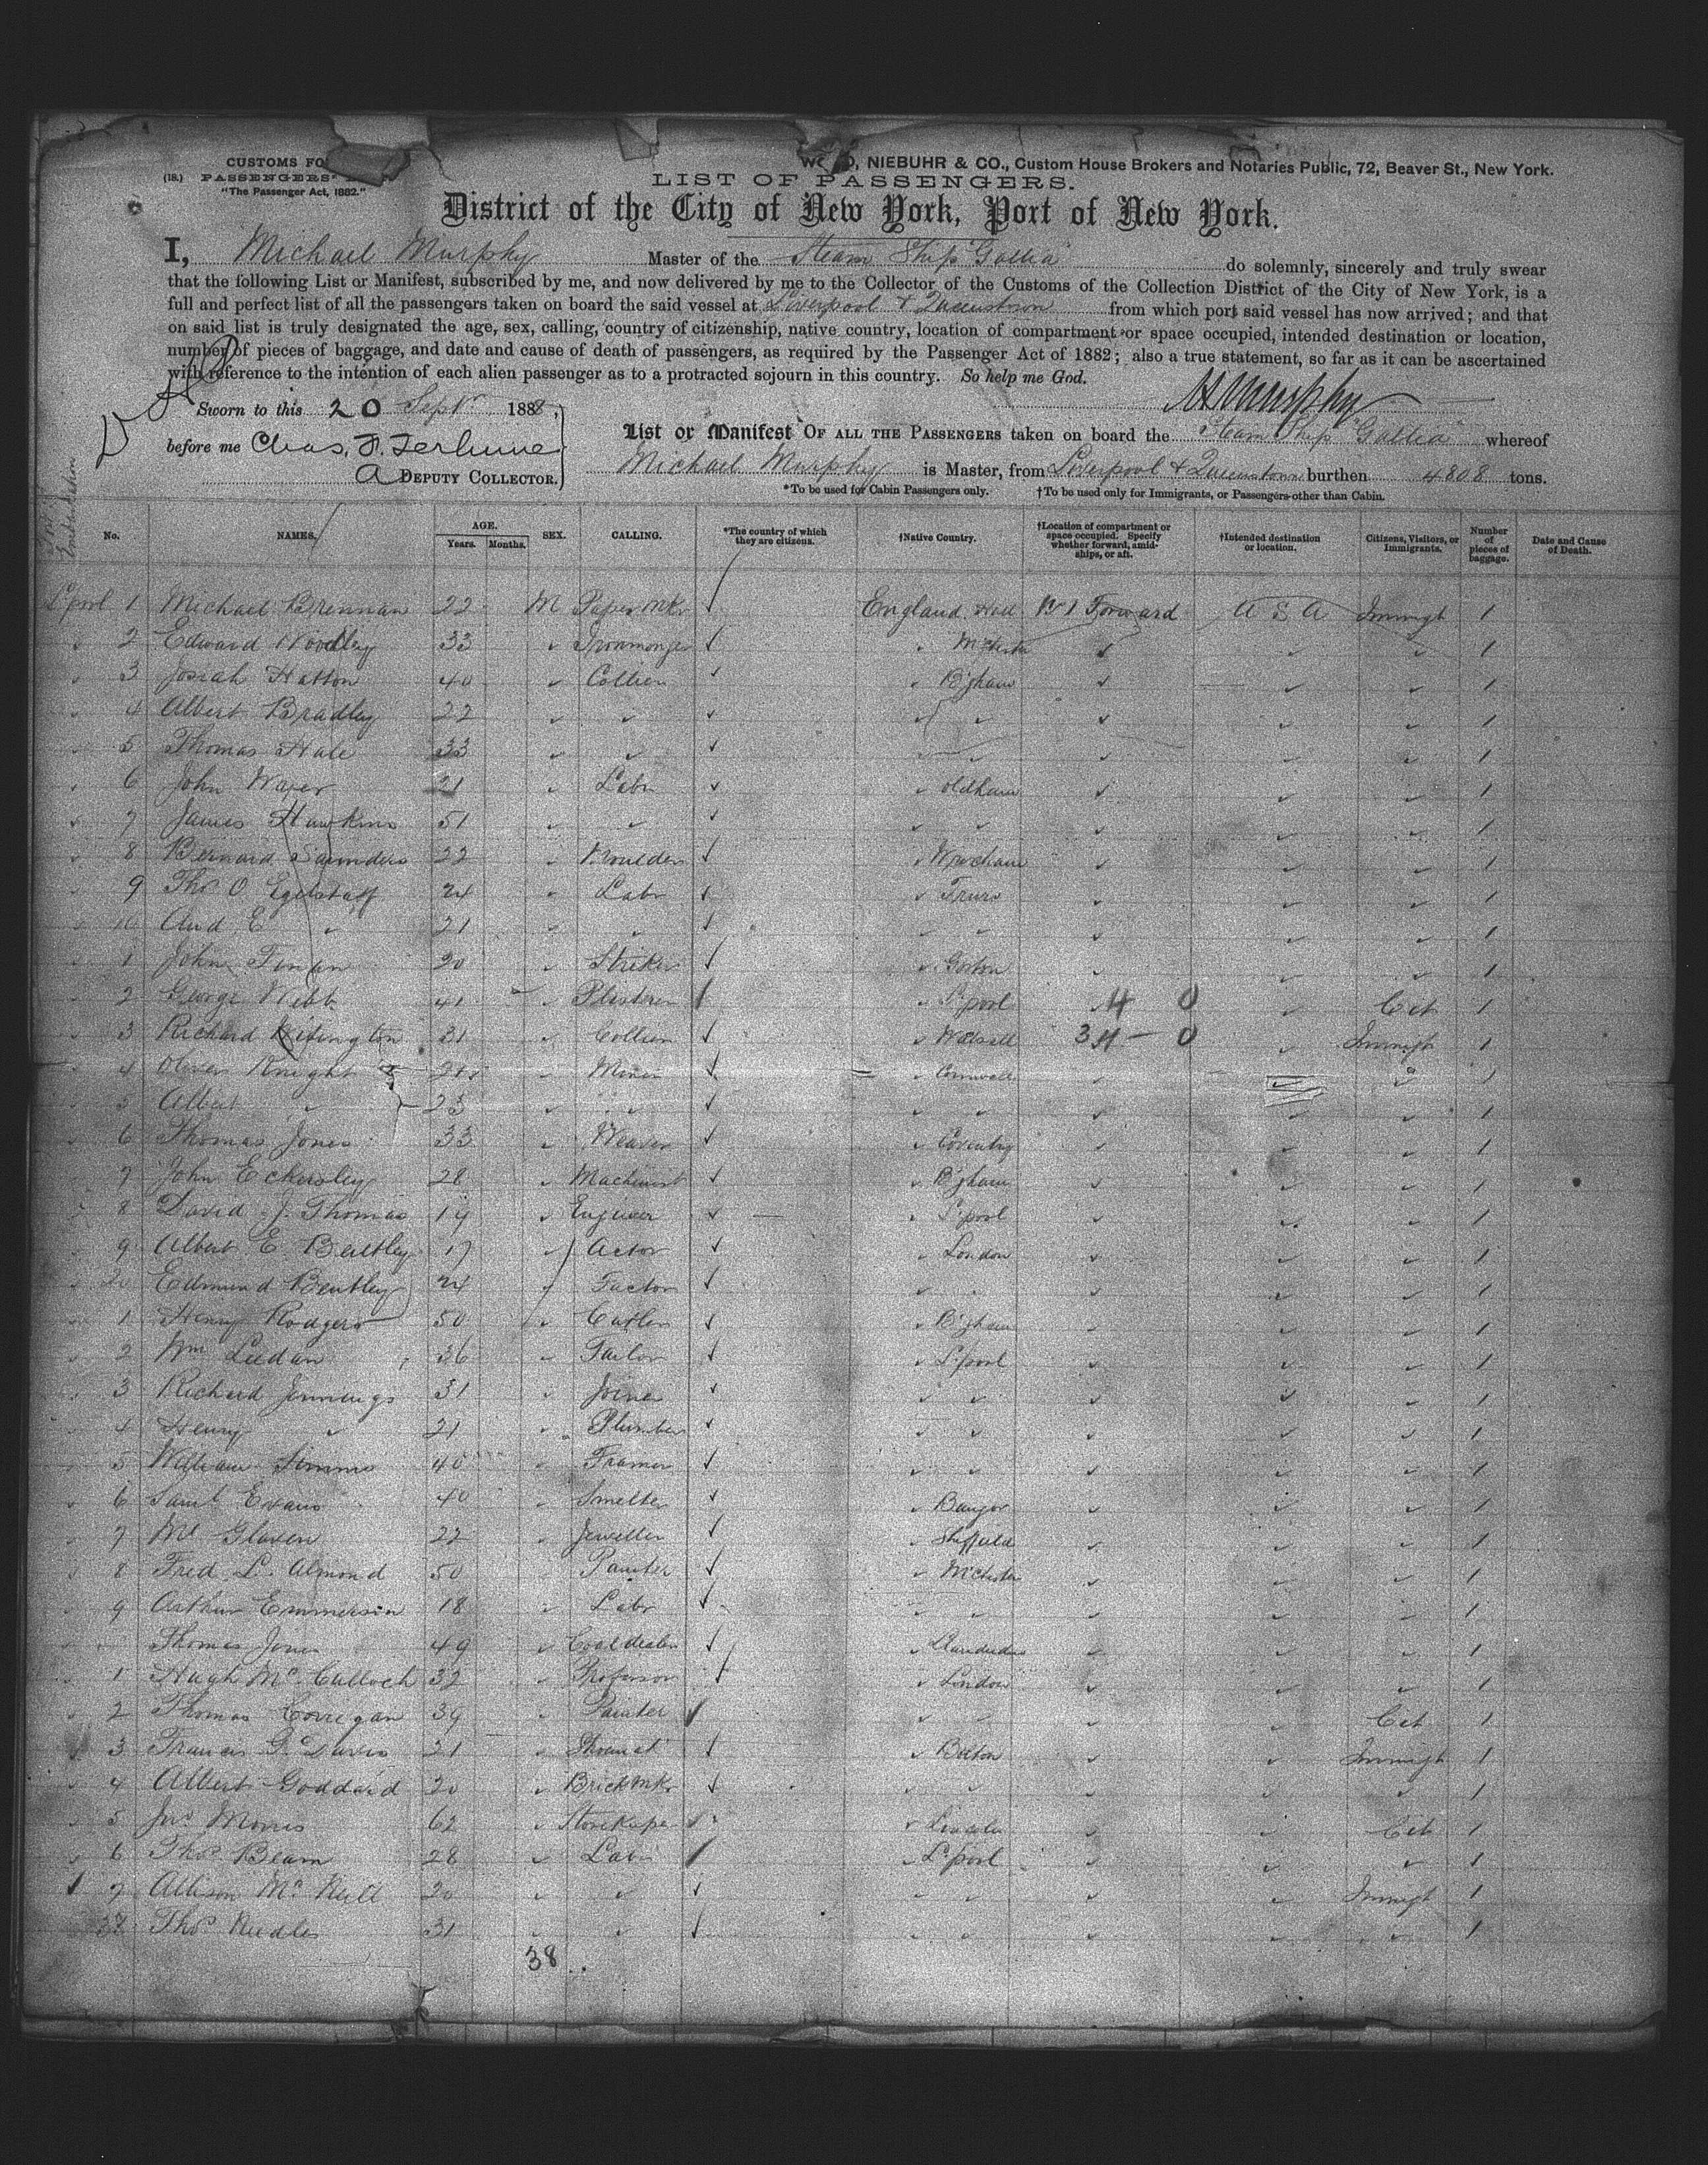 CUSTOMS FO
WOOD, NIEBUHR & CO., Custom House Brokers and Notaries Public, 72, Beaver St., New York.
(18.) PASSENGERS'
"The Passenger Act, 1882."
LIST OF PASSENGERS.
District of the City of New York, Port of New York.
I, Michael Murphy Master of the Steam Ship "Gallia" do solemnly, sincerely and truly swear
that the following List or Manifest, subscribed by me, and now delivered by me to the Collector of the Customs of the Collection District of the City of New York, is a
full and perfect list of all the passengers taken on board the said vessel at Liverpool & Queenstown from which port said vessel has now arrived; and that
on said list is truly designated the age, sex, calling, country of citizenship, native country, location of compartment or space occupied, intended destination or location,
number of pieces of baggage, and date and cause of death of passengers, as required by the Passenger Act of 1882; also a true statement, so far as it can be ascertained
with reference to the intention of each alien passenger as to a protracted sojourn in this country. So help me God.
M Murphy
Sworn to this 20 Sept 1888,
before me Chas. F. Terhune
A DEPUTY COLLECTOR.
List or Manifest OF ALL THE PASSENGERS taken on board the Steam Ship "Gallia" whereof
Michael Murphy is Master, from Liverpool & Queenstown burthen 4808 tons.
*To be used for Cabin Passengers only. †To be used only for Immigrants, or Passengers other than Cabin.
Port of Embarkation
No. NAMES. AGE. Years. Months. SEX. CALLING. *The country of which they are citizens. †Native Country. †Location of compartment or space occupied. Specify whether forward, amidships, or aft. †Intended destination or location. Citizens, Visitors, or Immigrants. Number of pieces of baggage. Date and Cause of Death.
L'pool 1 Michael Brennan 22 M Paper Mkr England Forward U S A Immigt 1
2 Edward Woodley 33 Ironmonger M'chester 1
3 Josiah Hatton 40 Collier B'gham 1
4 Albert Bradley 22 1
5 Thomas Hale 33 1
6 John 21 Labr Oldham 1
7 James Hawkins 51 1
8 Bernard Saunders 22 Moulder 1
9 Thos O Egelstaff 24 Labr Truro 1
10 And E 21 1
1 John 20 Striker Gorton 1
2 George Webb 41 Plasterer L'pool 4 0 Cit 1
3 Richard 31 Collier Walsall 0 Immigt 1
4 Oliver Knight Miner Cornwall 1
5 Albert 23 1
6 Thomas Jones 33 Weaver Coventry 1
7 John Eckersley 28 Machinist B'gham 1
8 David J. Thomas 19 Engineer L'pool 1
9 Albert E. Bentley 17 Actor London 1
Edmund Bentley 24 Factor 1
1 Henry Rodgers 50 Cutler B'gham 1
2 Wm Leedan 36 Tailor L'pool 1
3 Richard Jennings 31 Joiner 1
4 Henry 21 Plumber 1
5 William Simms 40 Framer 1
6 Saml Evans 40 Smelter Bangor 1
7 Ml Glaven 22 Jeweller Sheffield 1
8 Fred L. Almond 50 Painter M'chester 1
9 Arthur Emmerson 18 Labr 1
Thomas Jones 49 Coal dealer 1
1 Hugh Mc Culloch 32 Professor London 1
2 Thomas Corregan 39 Painter Cit 1
3 Francis G. Davis 21 Bolton Immigt 1
4 Albert Goddard 20 Brick Mkr 1
5 Jno Morris 62 Storekeeper Lincoln Cit 1
6 Thos Beam 28 Labr L'pool 1
7 Allison Mc Neill 20 Immigt 1
38 Thos Needles 31 1
38